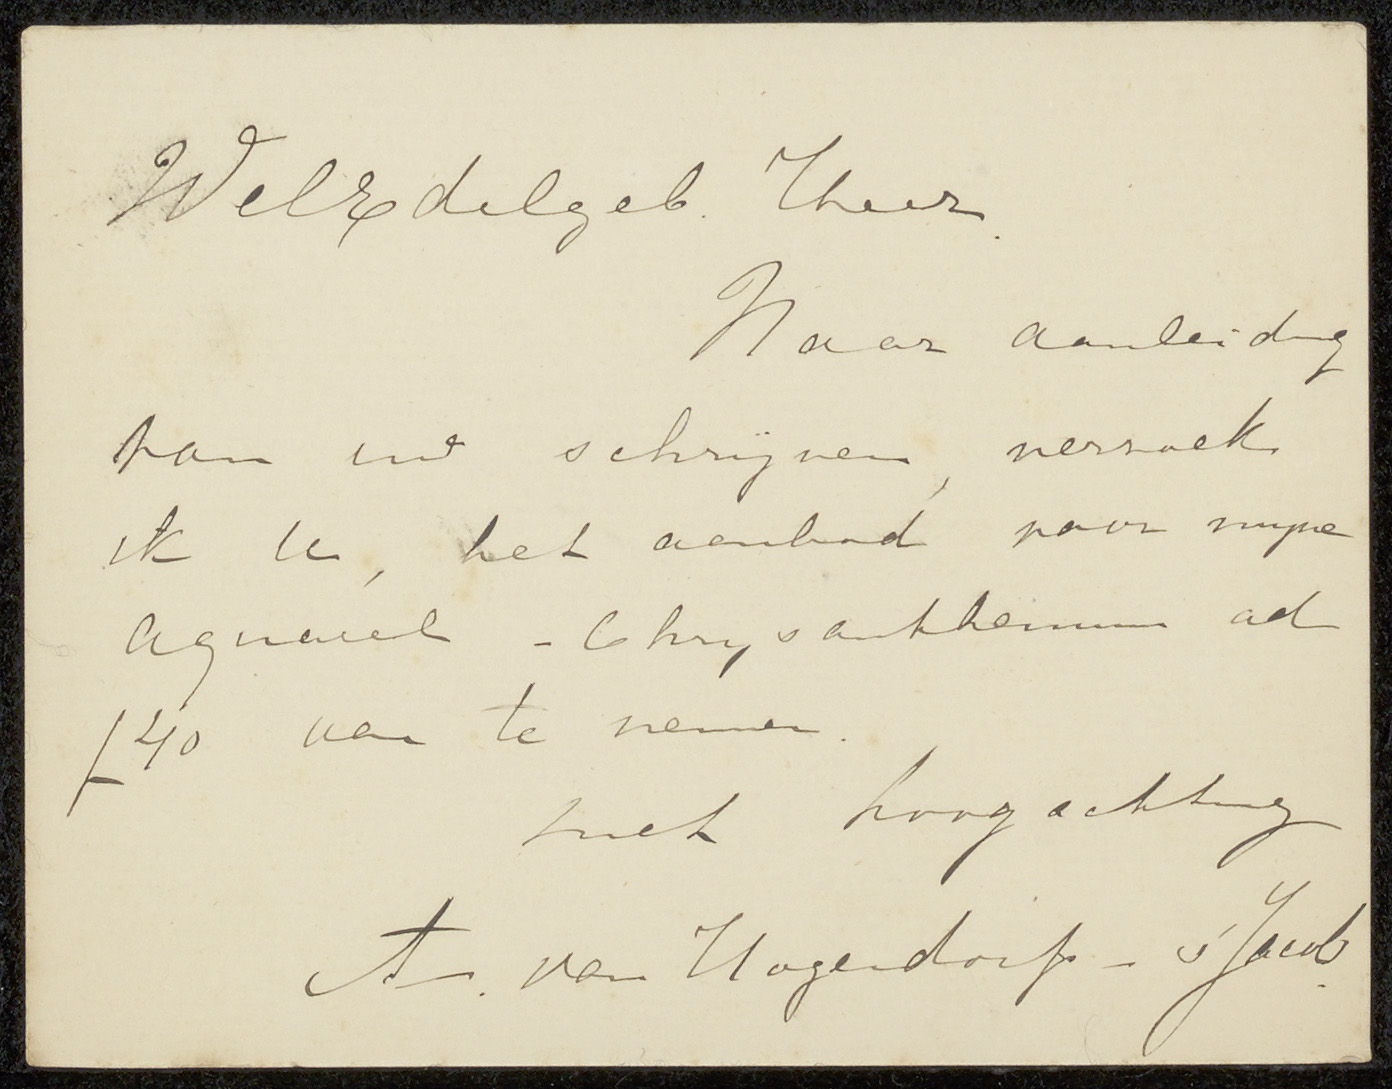 WelEdelgeb. Heer.
Naar aanleiding
van uw schrijven, verzoek
ik U, het aanbod voor mijne
aquarel - Chrysanthemum ad
ƒ40 aan te nemen.
met hoogachting
A. van Hogendorp - s'Jacob.